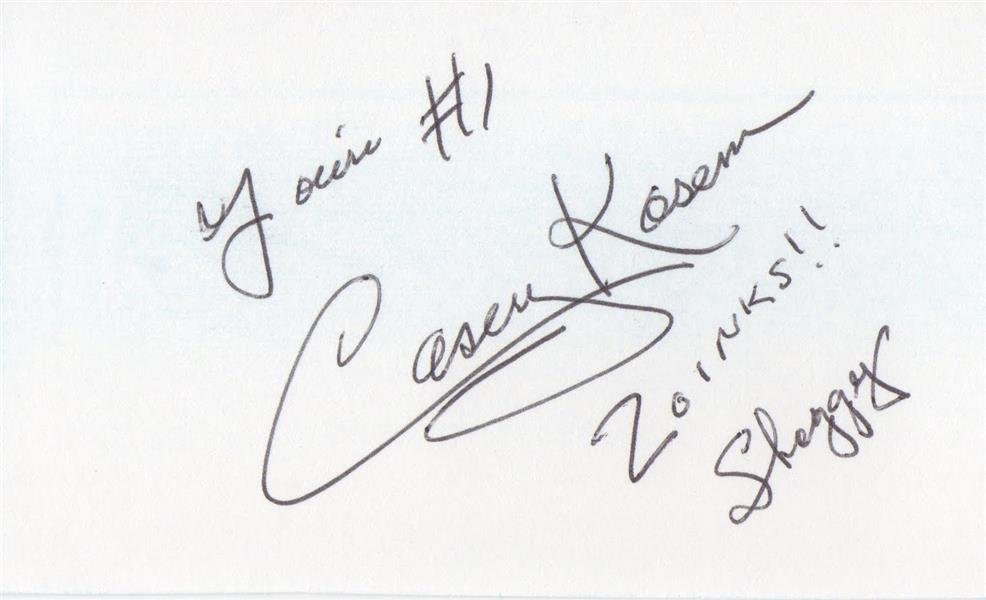 You're #1
Casey Kasem
ZOINKS!!
Shaggy